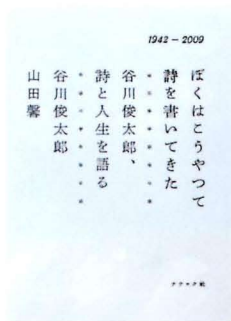 1942–2009
ぼくはこうやって
詩を書いてきた
谷川俊太郎、
詩と人生を語る
谷川俊太郎
山田馨
ナナロク社